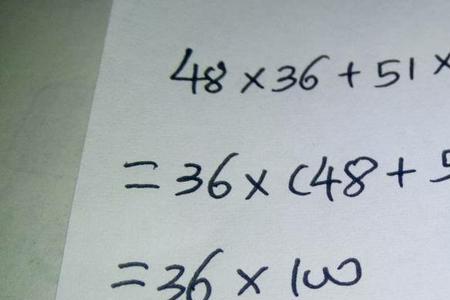 48×36+51×
=36×(48+5
=36×100